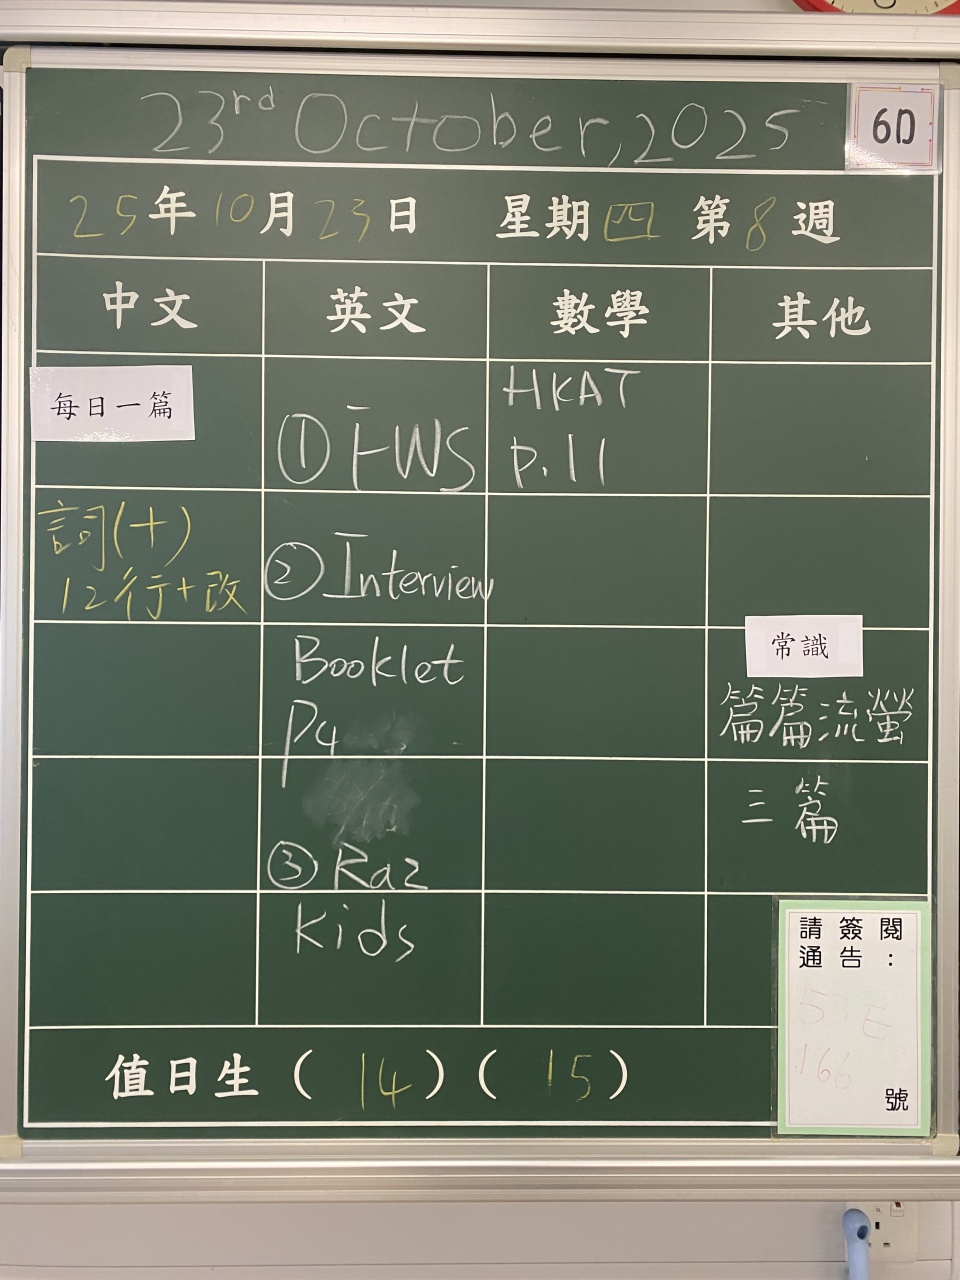 23rd October, 2025
6D
25年10月23日 星期四 第8週
中文 英文 數學 其他
每日一篇
詞(十)
12行+改
① FWS
② Interview
Booklet
P4
③ Raz
Kids
HKAT
p.11
常識
篇篇流螢
三篇
請簽閱
通告：
166
號
值日生 ( 14 ) ( 15 )